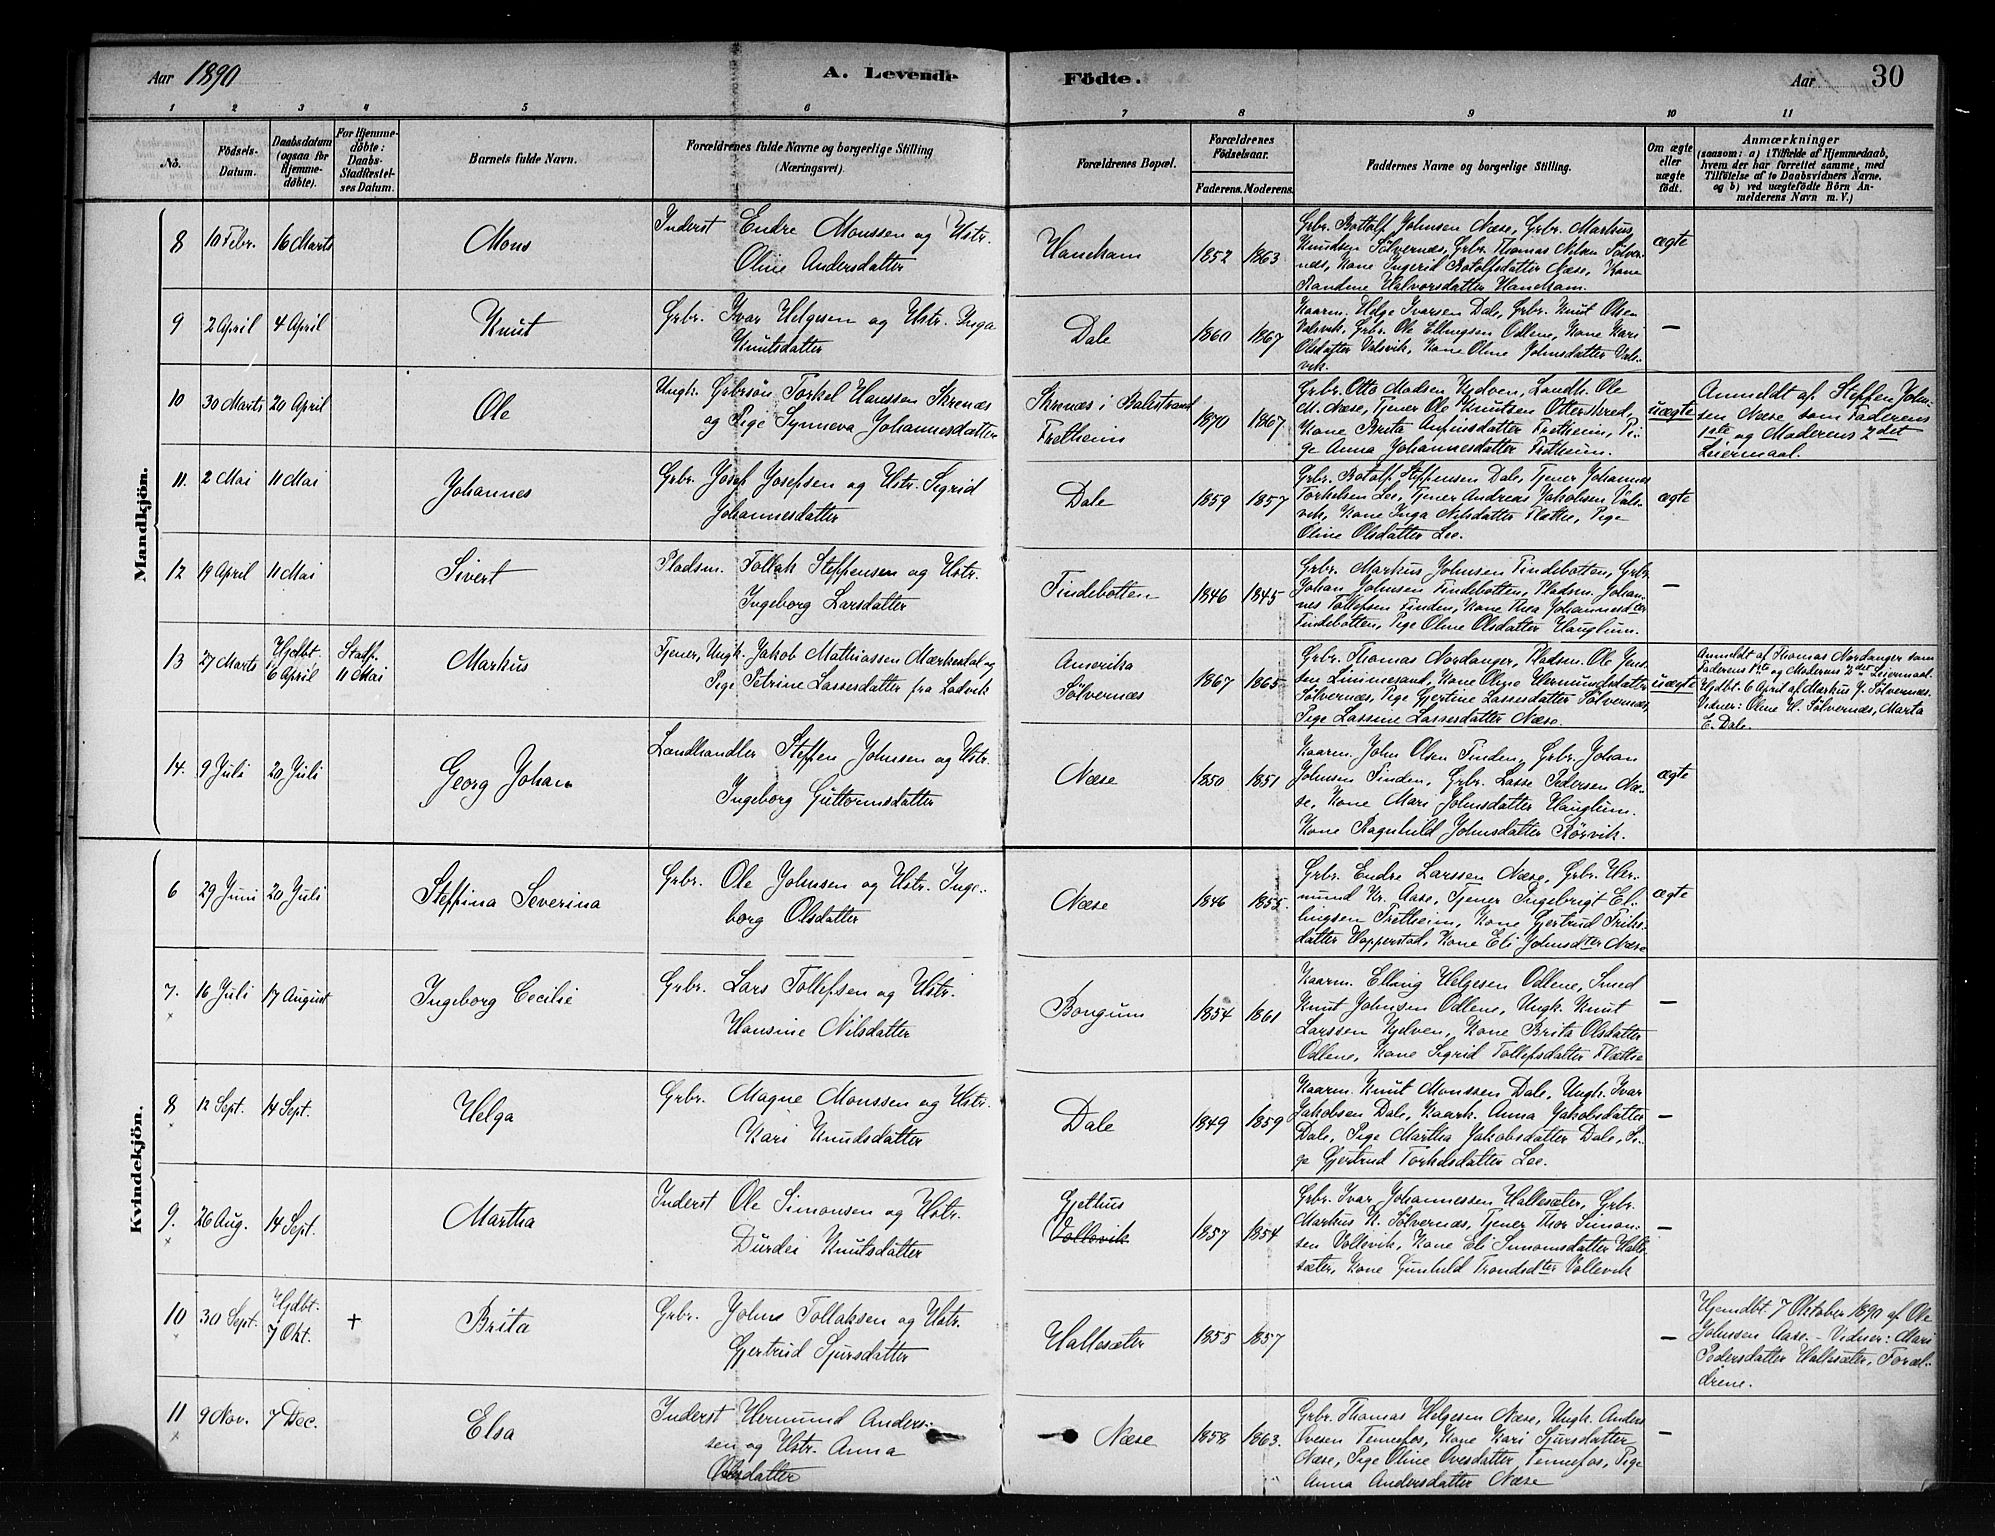 Aar 1890
A. Levende
Födte.
Aar
30
1 2 3 4 5 6 7 8 9 10 11
No.
Födsels-
Datum.
Daabsdatum
(ogsaa for
Hjemme-
döbte).
For Hjemme-
döbte:
Daabs-
Stadfæstel-
ses Datum.
Barnets fulde Navn.
Forældrenes fulde Navne og borgerlige Stilling
(Næringsvei).
Forældrenes Bopæl.
Forældrenes
Födselsaar.
Faderens. Moderens.
Faddernes Navne og borgerlige Stilling.
Om ægte
eller
uægte
födt.
Anmærkninger
(saasom: a) i Tilfælde af Hjemmedaab,
hvem der har forrettet samme, med
Tilföielse af to Daabsvidners Navne,
og b) ved uægtefödte Börn An-
melderens Navn m. V.)
Mandkjön.
8
10 Febr.
16 Marts
Mons
Inderst Endre Monssen og Hstr.
Oline Andersdatter
Hanekam
1852
1863
Grbr. Bottolf Johnsen Næse, Grbr. Markus
Knudsen Sölvernæs, Grbr. Thomas Nilsen Sölver-
næs, Kone Ingerid Botolfsdatter Næse, Kone
Randine Halvorsdatter Hanekam.
ægte
9
2 April
4 April
Knut
Grbr. Ivar Helgesen og Hstr. Inga
Knutsdatter
Dale
1860
1867
Kaarm. Helge Ivarsen Dale, Grbr. Knut Olsen
Valsvik, Grbr. Ole Ellingsen Odlene, Kone Kari
Olsdatter Valsvik, Kone Oline Johnsdatter Vals-
vik.
—
10
30 Marts
20 April
Ole
Ungk. Grbrsön Torkel Hanssen Skrenæs
og Pige Synneva Johannesdatter
Skrenæs i Balestrand
Fretheim
1870
1867
Grbr. Otto Madsen Kjelven, Landh. Ole
M. Næse, Tjener Ole Knutsen Otterskred,
Kone Brita Anfinsdatter Fretheim, Pi-
ge Anna Johannesdatter Fretheim.
uægte
Anmeldt af Steffen John-
sen Næse som Faderens
1ste og Moderens 2det
Leiermaal.
11.
2 Mai
11 Mai
Johannes
Grbr. Josef Josefsen og Hstr. Sigrid
Johannesdatter
Dale
1859
1857
Grbr. Botolf Steffensen Dale, Tjener Johannes
Torkelsen Lee, Tjener Andreas Jakobsen Vals-
vik, Kone Inga Nilsdatter Flatte, Pige
Oline Olsdatter Lee.
ægte
12
19 April
11 Mai
Sivert
Pladsm. Tollak Steffensen og Hstr.
Ingeborg Larsdatter
Findebotten
1846
1845
Grbr. Markus Johnsen Findebotten, Grbr.
Johan Johnsen Findebotten, Pladsm. Johan-
nes Tollefsen Finden, Kone Thea Johannesdter
Findebotten, Pige Oline Olsdatter Hauglum.
—
13
27 Marts
Hjdbt.
6 April
Stadf.
11 Mai
Markus
Tjener, Ungk. Jakob Mathiassen Mærkesdal og
Pige Petrine Lassesdatter fra Ladvik
Amerika
Sölvernæs
1867
1865
Grbr. Thomas Nordanger, Pladsm. Ole Jens-
sen Linnesand, Kone Oline Hermundsdatter
Sölvernæs, Pige Gjertine Lassesdatter Sölvernæs,
Pige Lassine Lassesdatter Næse.
uægte
Anmeldt af Thomas Nordanger som
Faderens 1ste og Moderens 2det Leiermaal.
Hjdbt. 6 April af Markus J. Sölvernæs.
Vidner: Oline H. Sölvernæs, Marta
E. Dale.
14.
9 Juli
20 Juli
Georg Johan
Landhandler Steffen Johnsen og Hstr.
Ingeborg Guttormsdatter
Næse
1850
1851
Kaarm. John Olsen Finden, Grbr. Johan
Johnsen Finden, Grbr. Lasse Pedersen Næ-
se, Kone Mari Johnsdatter Hauglum.
Kone Ragnhild Johnsdatter Rörvik.
ægte
Kvindekjön.
6
29 Juni
20 Juli
Steffina Severina
Grbr. Ole Johnsen og Hstr. Inge-
borg Olsdatter
Næse
1846
1855.
Grbr. Endre Larssen Næse, Grbr. Her-
mund Kr. Aase, Tjener Ingebrigt El-
lingsen Fretheim, Kone Gjertrud Friks-
datter Hopperstad, Kone Eli Johnsdter Næse
ægte
7.
16 Juli
17 August
Ingeborg Cecilie
Grbr. Lars Tollefsen og Hstr.
Hansine Nilsdatter
Bongum
1854
1861
Kaarm. Elling Helgesen Odlene, Smed
Knut Johnsen Odlene, Ungk. Knut
Larssen Kjelven, Kone Brita Olsdatter
Odlene, Kone Sigrid Tollefsdatter Flætte
—
8
12 Sept.
14 Sept.
Helga
Grbr. Magne Monssen og Hstr.
Kari Knudsdatter
Dale
1849
1859
Kaarm. Knut Monssen Dale, Ungk. Ivar
Jakobsen Dale, Kaark. Anna Jakobsdatter
Dale, Pige Martha Jakobsdatter Dale, Pi-
ge Gjertrud Torkelsdatter Lee.
—
9.
26 Aug.
14 Sept.
Martha
Inderst Ole Simonsen og Hstr.
Durdei Knutsdatter
Gjethus
Vollevik
1857
1854
Grbr. Ivar Johannessen Hallesæter, Grbr.
Markus K. Sölvernæs, Tjener Thor Simon-
sen Vollevik, Kone Eli Simonsdatter Halle-
sæter, Kone Gunhild Trondsdter Vollevik
—
10
30 Sept.
Hjdbt.
7 Okt.
+
Brita
Grbr. Johns Tollaksen og Hstr.
Gjertrud Sjursdatter
Hallesæter
1855
1857
—
Hjemdbt. 7 Oktober 1890 af Ole
Johnsen Aase. - Vidner: Mari
Pedersdatter Hallesæter, Foræl-
drene.
11
9 Nov.
7 Dec.
Elsa
Inderst Hermund Anders-
sen og Hstr. Anna
Olsdatter
Næse
1858
1863.
Grbr. Thomas Helgesen Næse, Ungk. Anders
Ovesen Tennefos, Kone Kari Sjursdatter
Næse, Pige Oline Ovesdatter Tennefos, Pige
Anna Andersdatter Næse
—